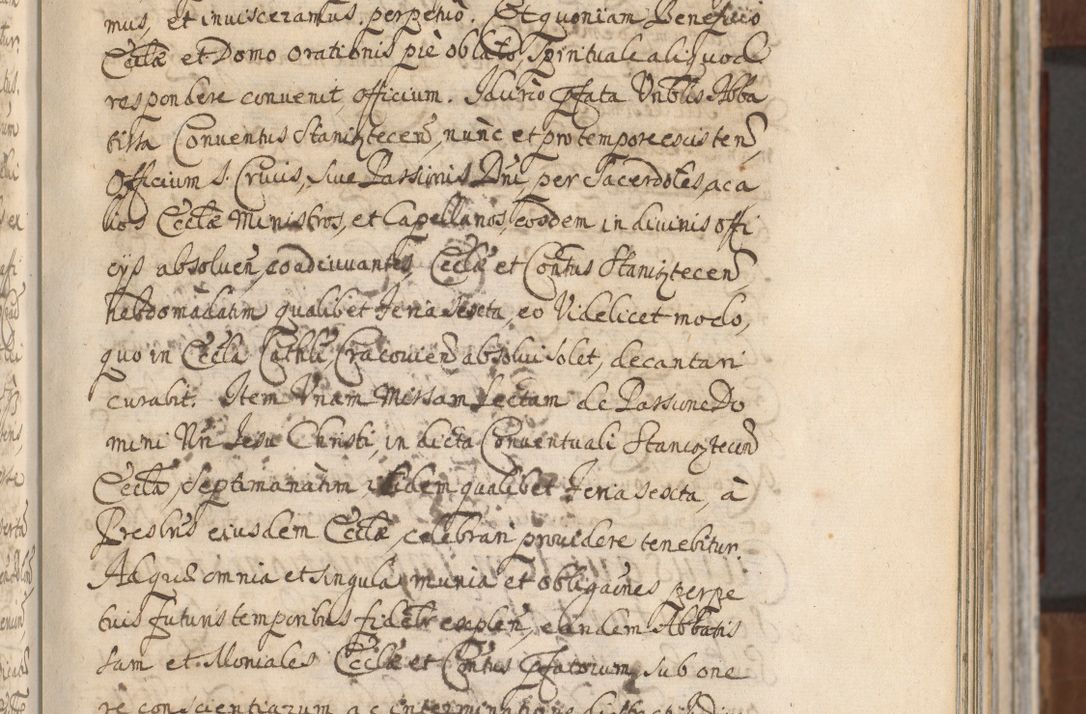 mus, et inuisceramus. perpetuò. Et quoniam Beneficio
Ecclæ et Domo orationis piè oblato, spirituale aliquod
respondere conuenit officium. Idcircò pfata Vnblis Abba
tissa Conuentus Staniąteceñ, nunc et pro tempore existeñ,
Officium S. Crucis, siue Passionis Dni, per Sacerdotes, ac a
lios Ecclæ Ministros, et Capellanos, eosdem in diuinis offi
cijs absolueñ, coadiuuantes, Ecclæ et Contus Staniąteceñ
hebdomadatim qualibet feria sexta, eo Videlicet modo,
quo in Eccla Cathli Cracouieñ absolui solet, decantari
curabit. Item Vnam Missam Lectam de Passione Do
mini Nri Iesu Christi, in dicta Conuentuali Staniąteceñ
Eccla, septimanatim ibidem qualibet feria sexta, à
Presbris eiusdem Ecclæ, celebrari prouidere tenebitur.
Ad quæ omnia et singula munia et obligaones perpe
tuis futuris temporibus fideliter expleñ, eandem Abbatis
sam et Moniales Ecclæ et Contus pfatorum, sub one
re conscientiarum ac interminatione